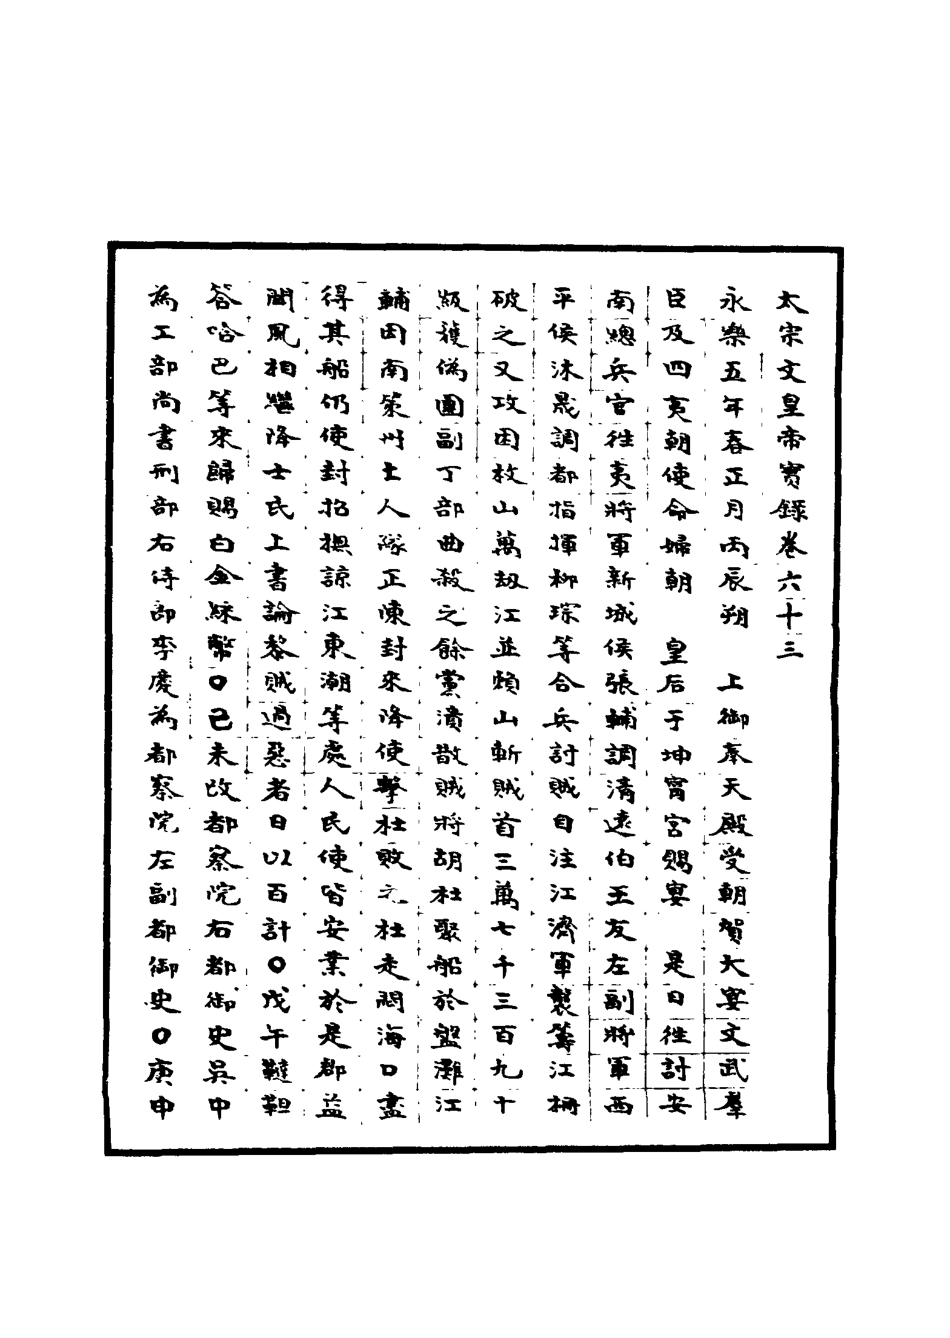 太宗文皇帝實錄卷六十三
永樂五年春正月丙辰朔　上御奉天殿受朝賀大宴文武羣
臣及四夷朝使命婦朝　皇后于坤寧宮賜宴　是日徃討安
南總兵官徃夷將軍新城侯張輔調清遠伯王友左副將軍西
平侯沐晟調都指揮柳琮等合兵討賊自注江濟軍襲籌江柵
破之又攻困枚山萬刼江並賴山斬賊首三萬七千三百九十
級獲偽圍副丁部曲殺之餘黨潰散賊將胡杜聚船於盤灘江
輔因南策州土人隊正陳封來降使擊杜敗之杜走悶海口盡
得其船仍使封招撫諒江東潮等處人民使皆安業於是郡益
聞風相繼降士民上書論黎賊過惡者日以百計○戊午韃靼
答哈巴等來歸賜白金綵幣○己未改都察院右都御史吳中
為工部尚書刑部右侍郎李慶為都察院左副都御史○庚申